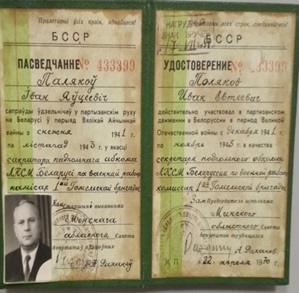 Пралетарыі ўсіх краін, яднайцеся!
БССР
ПАСВЕДЧАННЕ № 433399
Палякоў
Іван Яўцеевіч
сапраўды удзельнічаў у партызанскім руху
на Беларусі ў перыяд Вялікай Айчыннай
вайны з снежня 1942
па лістапад 1943 у якасці
сакратара падпольнага абкома
ЛКСМ Беларусі па ваеннай рабоце
камісар 1ай Гомельскай брыгады
Мінскага
абласнога Савета
дэпутатаў
всех стран,
БССР
УДОСТОВЕРЕНИЕ № 433399
Поляков
Иван Евтеевич
действительно участвовал в партизанском
движении в Белоруссии в период Великой
Отечественной войны с декабря 1942
по ноябрь 1943 в качестве
секретаря подпольного обкома
ЛКСМ Белоруссии по военной работе
комиссар 1ой Гомельской бригады
Минского
областного Совета
депутатов
22 апреля 1970